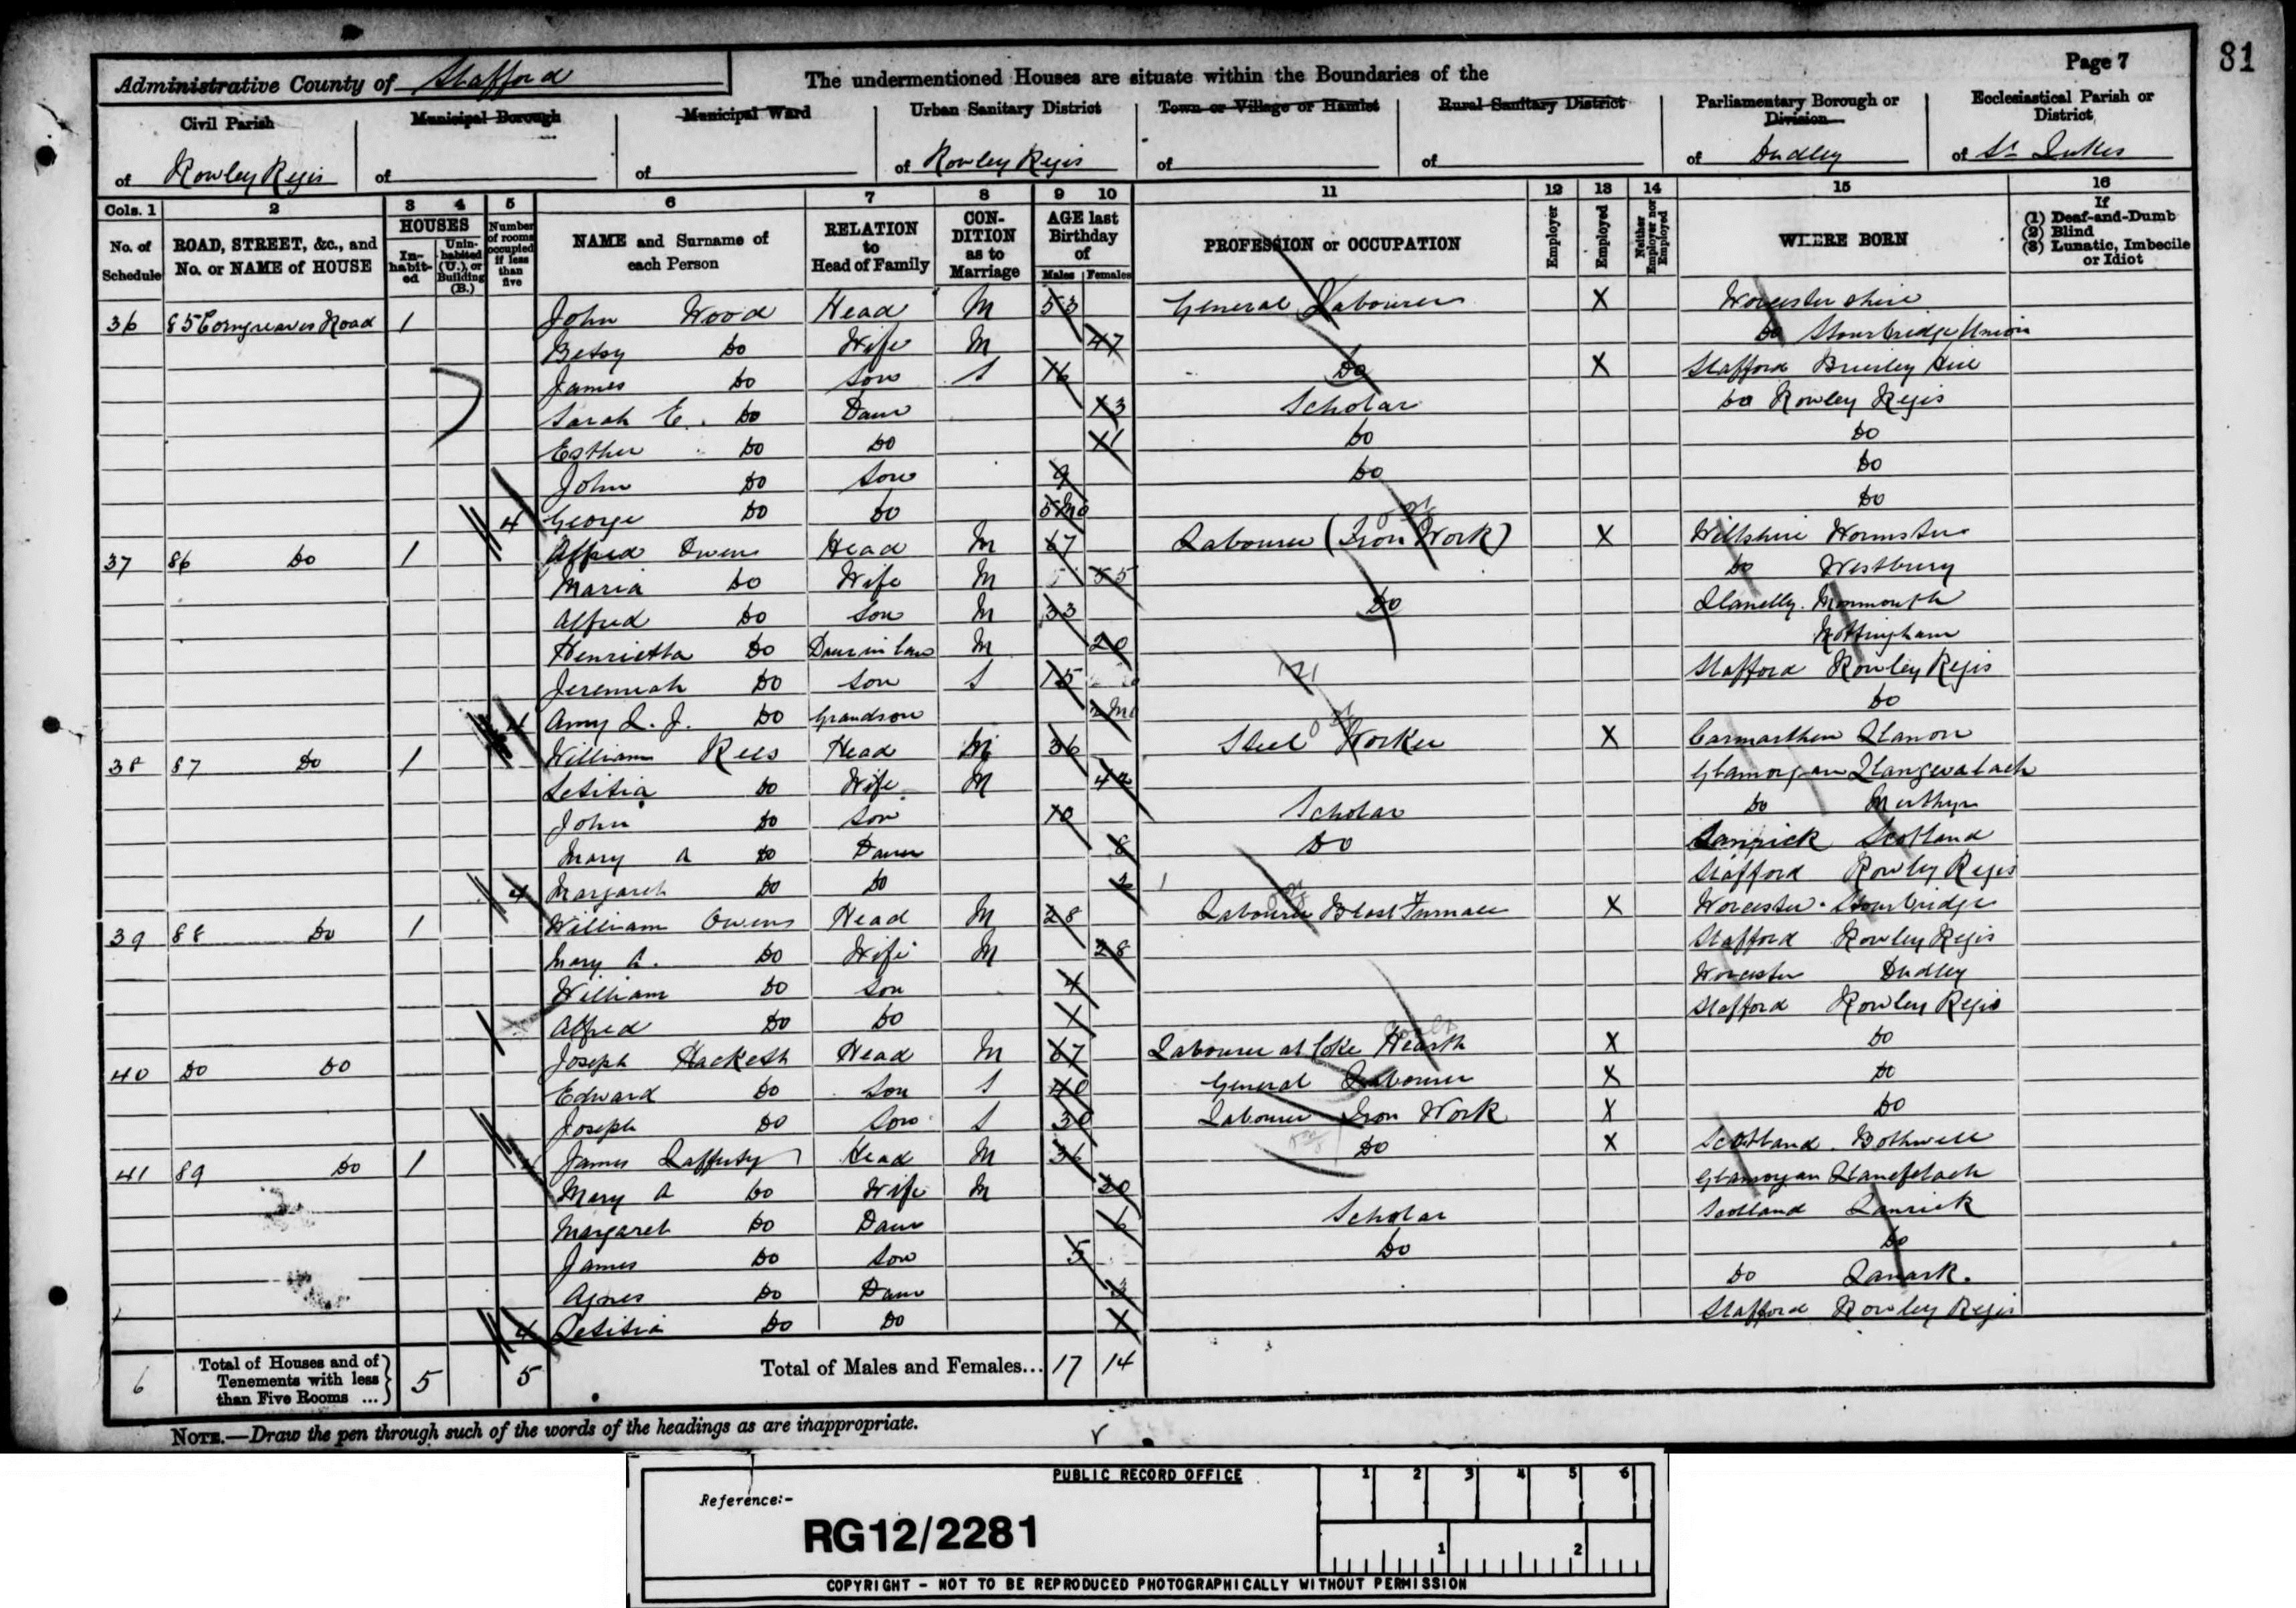 Administrative County of Stafford
The undermentioned Houses are situate within the Boundaries of the
Page 7
81
Civil Parish of Rowley Regis
Municipal Borough of
Municipal Ward of
Urban Sanitary District of Rowley Regis
Town or Village or Hamlet of
Rural Sanitary District of
Parliamentary Borough or Division of Dudley
Ecclesiastical Parish or District of St Lukes
Cols. 1 2 3 4 5 6 7 8 9 10 11 12 13 14 15 16
No. of Schedule
ROAD, STREET, &c., and No. or NAME of HOUSE
HOUSES
In-habit-ed
Unin-habited (U.), or Building (B.)
Number of rooms occupied if less than five
NAME and Surname of each Person
RELATION to Head of Family
CON-DITION as to Marriage
AGE last Birthday of
Males Females
PROFESSION or OCCUPATION
Employer
Employed
Neither Employer nor Employed
WHERE BORN
If (1) Deaf-and-Dumb (2) Blind (3) Lunatic, Imbecile or Idiot
36 85 Corngreaves Road 1 John Wood Head M 53 General Labourer X Worcestershire
Betsy Do Wife M 47 Do Stourbridge Union
James Do Son S 16 Do X Stafford Brierley Hill
Sarah E. Do Daur 13 Scholar Do Rowley Regis
Esther Do Do 11 Do Do
John Do Son 9 Do Do
4 George Do Do 5 Mo Do
37 86 Do 1 Alfred Owens Head M 67 Labourer (Iron Work) X Wiltshire Warminster
Maria Do Wife M 55 Do Westbury
Alfred Do Son M 33 Do Llanelly. Monmouth
Henrietta Do Daur in law M 20 Nottingham
Jeremiah Do Son S 15 Stafford Rowley Regis
4 Amy L. J. Do Grandson 2 Mo Do
38 87 Do 1 William Rees Head M 36 Steel Worker X Carmarthen Llanon
Letitia Do Wife M 42 Glamorgan Llangevalach
John Do Son 10 Scholar Do Merthyr
Mary A Do Daur 8 Do Lanrick Scotland
4 Margaret Do Do 2 Stafford Rowley Regis
39 88 Do 1 William Owens Head M 28 Labourer Blast Furnace X Worcester Stourbridge
Mary A. Do Wife M 28 Stafford Rowley Regis
William Do Son 4 Worcester Dudley
Alfred Do Do 1 Stafford Rowley Regis
40 Do Do Joseph Hackett Head M 67 Labourer at Coke Hearth X Do
Edward Do Son S 40 General Labourer X Do
Joseph Do Son S 30 Labourer Iron Work X Do
41 89 Do 1 James Lafferty Head M 36 Do X Scotland Bothwell
Mary A Do Wife M 20 Glamorgan Llanefelach
Margaret Do Daur 6 Scholar Scotland Lanrick
James Do Son 5 Do Do
Agnes Do Daur 3 Do Lanark.
4 Letitia Do Do 1 Stafford Rowley Regis
6 Total of Houses and of Tenements with less than Five Rooms ... 5 5 Total of Males and Females... 17 14
NOTE.—Draw the pen through such of the words of the headings as are inappropriate.
PUBLIC RECORD OFFICE
1 2 3 4 5 6
Reference:-
RG12/2281
1 2
COPYRIGHT - NOT TO BE REPRODUCED PHOTOGRAPHICALLY WITHOUT PERMISSION